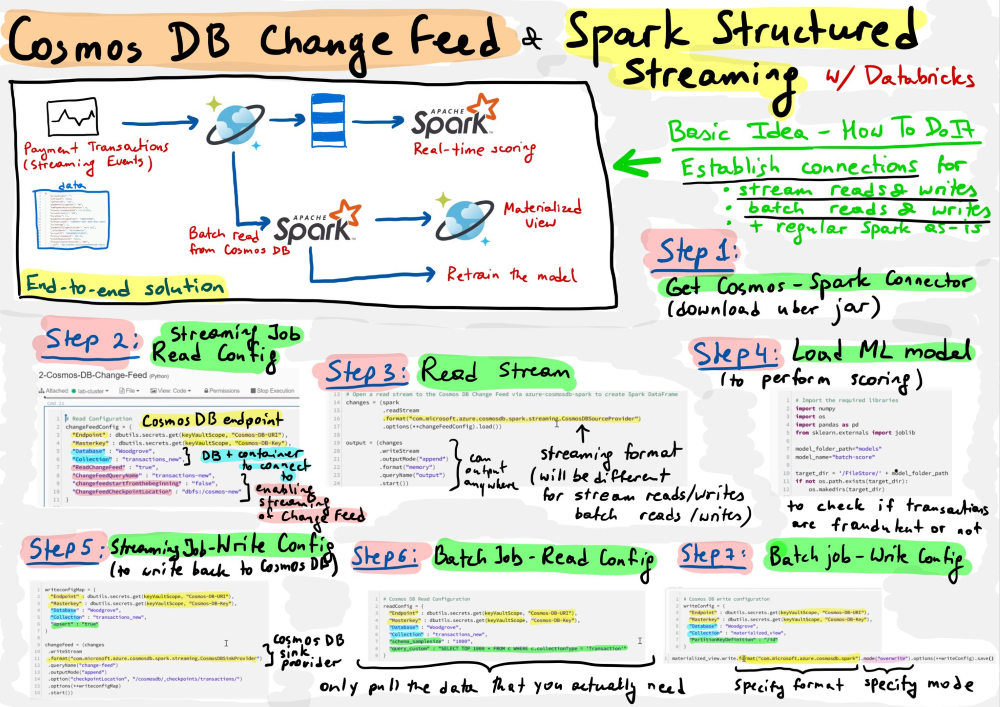 Cosmos DB Change Feed & Spark Structured
Streaming w/ Databricks
Payment Transactions
(Streaming Events)
data
APACHE
Spark
Real-time scoring
Batch read
from Cosmos DB
APACHE
Spark
Materialized
View
Retrain the model
End-to-end solution
Basic Idea - How To Do It
Establish connections for
• stream reads & writes
• batch reads & writes
+ regular Spark as-is
Step 1:
Get Cosmos-Spark Connector
(download uber jar)
Step 2: Streaming Job
Read Config
2-Cosmos-DB-Change-Feed (Python)
Attached: lab-cluster File View: Code Permissions Stop Execution
Cmd 11
1 # Read Configuration
2 changeFeedConfig = {
3 "Endpoint" : dbutils.secrets.get(keyVaultScope, "Cosmos-DB-URI"),
4 "Masterkey" : dbutils.secrets.get(keyVaultScope, "Cosmos-DB-Key"),
5 "Database" : "Woodgrove",
6 "Collection" : "transactions_new",
7 "ReadChangeFeed" : "true",
8 "ChangeFeedQueryName" : "transactions-new",
9 "changefeedstartfromthebeginning" : "false",
10 "ChangeFeedCheckpointLocation" : "dbfs:/cosmos-new"
11 }
Cosmos DB endpoint
DB + container
to connect
to
enabling
streaming
of Change Feed
Step 3: Read Stream
13 # Open a read stream to the Cosmos DB Change Feed via azure-cosmosdb-spark to create Spark DataFrame
14 changes = (spark
15 .readStream
16 .format("com.microsoft.azure.cosmosdb.spark.streaming.CosmosDBSourceProvider")
17 .options(**changeFeedConfig).load())
18
19 output = (changes
20 .writeStream
21 .outputMode("append")
22 .format("memory")
23 .queryName("output")
24 .start())
can
output
anywhere
streaming format
(will be different
for stream reads/writes
batch reads/writes)
Step 4: Load ML model
(to perform scoring)
1 # Import the required libraries
2 import numpy
3 import os
4 import pandas as pd
5 from sklearn.externals import joblib
6
7 model_folder_path="models"
8 model_name="batch-score"
9
10 target_dir = '/FileStore/' + model_folder_path
11 if not os.path.exists(target_dir):
12 os.makedirs(target_dir)
to check if transactions
are fraudulent or not
Step 5: Streaming Job-Write Config
(to write back to Cosmos DB)
1 writeconfigMap = {
2 "Endpoint" : dbutils.secrets.get(keyVaultScope, "Cosmos-DB-URI"),
3 "Masterkey" : dbutils.secrets.get(keyVaultScope, "Cosmos-DB-Key"),
4 "Database" : "Woodgrove",
5 "Collection" : "transactions_new",
6 "upsert" : "true"
7 }
8
9 changefeed = (changes
10 .writeStream
11 .format("com.microsoft.azure.cosmosdb.spark.streaming.CosmosDBSinkProvider")
12 .queryName("change-feed")
13 .outputMode("append")
14 .option("checkpointLocation", "/cosmosdb/_checkpoints/transactions/")
15 .options(**writeconfigMap)
16 .start())
Cosmos DB
sink
provider
Step 6: Batch Job - Read Config
1 # Cosmos DB Read Configuration
2 readConfig = {
3 "Endpoint" : dbutils.secrets.get(keyVaultScope, "Cosmos-DB-URI"),
4 "Masterkey" : dbutils.secrets.get(keyVaultScope, "Cosmos-DB-Key"),
5 "Database" : "Woodgrove",
6 "Collection" : "transactions_new",
7 "schema_samplesize" : "1000",
8 "query_custom" : "SELECT TOP 1000 * FROM c WHERE c.collectionType = 'Transaction'"
9 }
only pull the data that you actually need
Step 7: Batch job - Write Config
1 # Cosmos DB write configuration
2 writeConfig = {
3 "Endpoint" : dbutils.secrets.get(keyVaultScope, "Cosmos-DB-URI"),
4 "Masterkey" : dbutils.secrets.get(keyVaultScope, "Cosmos-DB-Key"),
5 "Database" : "Woodgrove",
6 "Collection" : "materialized_view",
7 "PartitionKeyDefinition" : "/id"
8 }
materialized_view.write.format("com.microsoft.azure.cosmosdb.spark").mode("overwrite").options(**writeConfig).save()
specify format specify mode